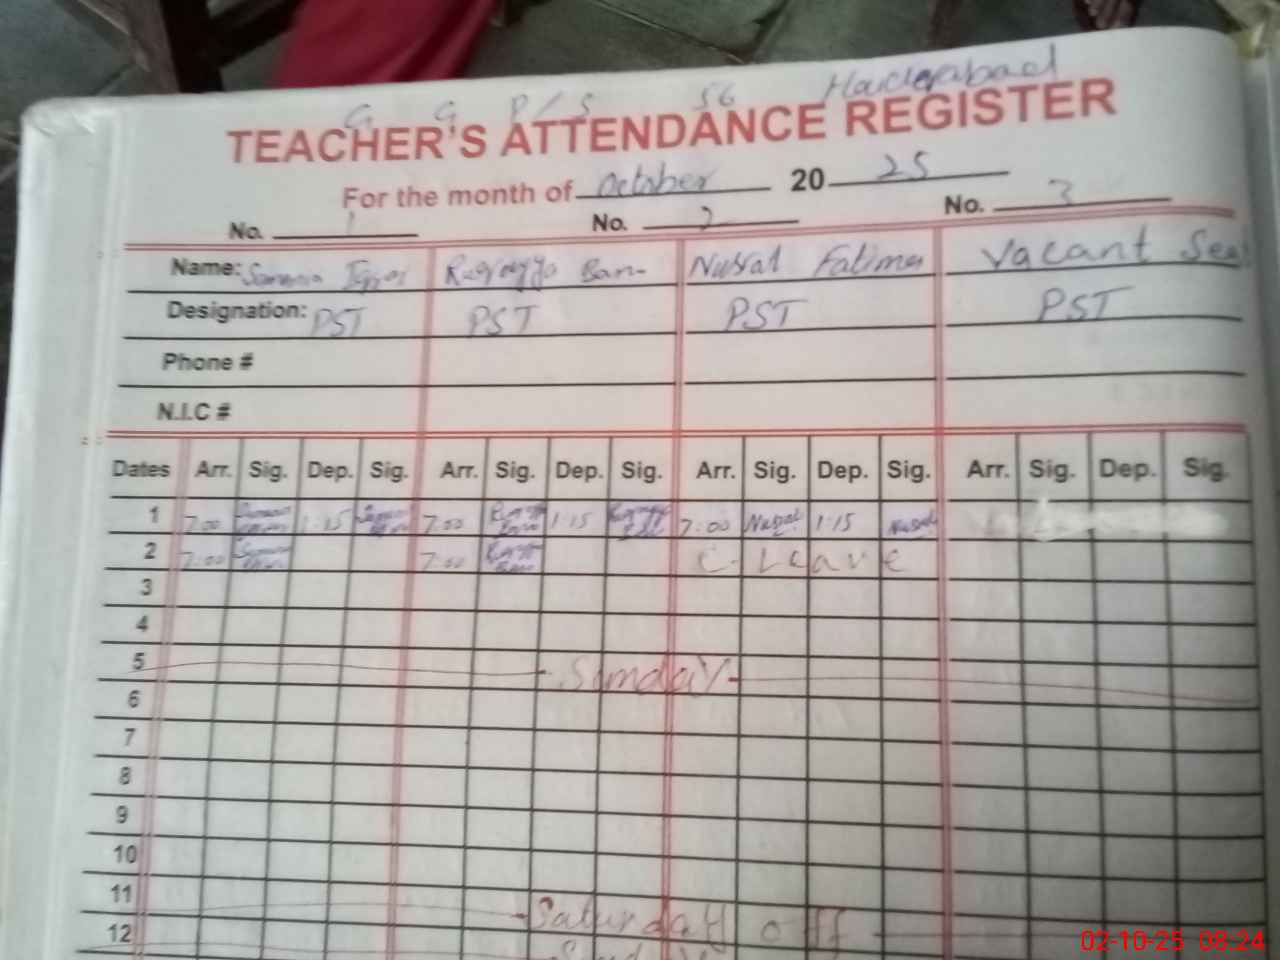 G G P/S 56 Haiderabad
TEACHER'S ATTENDANCE REGISTER
For the month of October 20 25
No. 1 No. 2 No. 3
Name: Ban- Nusrat Fatima Vacant Seat
Designation: PST PST PST PST
Phone #
N.I.C #
Dates Arr. Sig. Dep. Sig. Arr. Sig. Dep. Sig. Arr. Sig. Dep. Sig. Arr. Sig. Dep. Sig.
1 7:00 1:15 7:00 1:15 7:00 Nusrat 1:15 Nusrat
2 7:00 7:00 C-Leave
3
4
5 -Sunday-
6
7
8
9
10
11 -Saturday off-
12
02-10-25 08:24